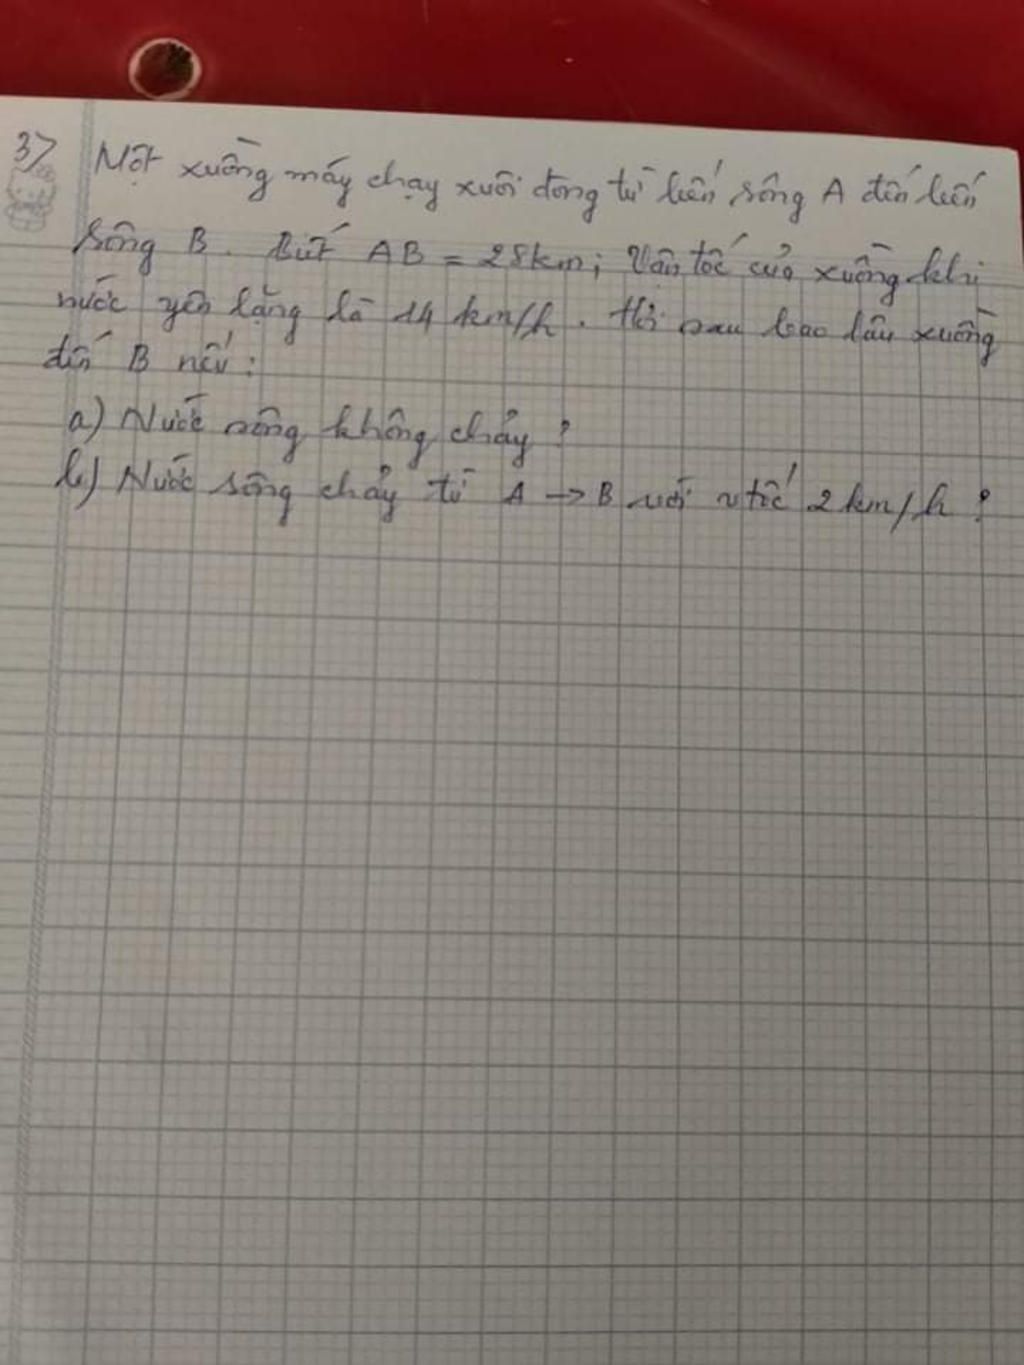 3> Một xuồng máy chạy xuôi dòng từ bến sông A đến bến
sông B. Biết AB = 28km; Vận tốc của xuồng khi
nước yên lặng là 14 km/h. Hỏi sau bao lâu xuồng
đến B nếu:
a) Nước sông không chảy?
b) Nước sông chảy từ A → B với vtốc 2 km/h?